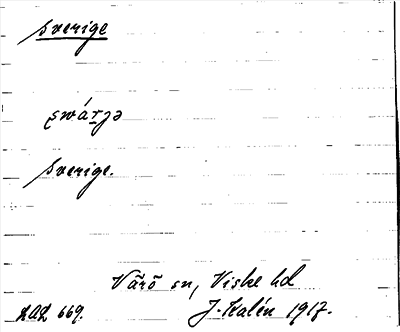 Sverige
swárjə
Sverige.
Värö sn, Viske hd
669. J. Kalén 1917.